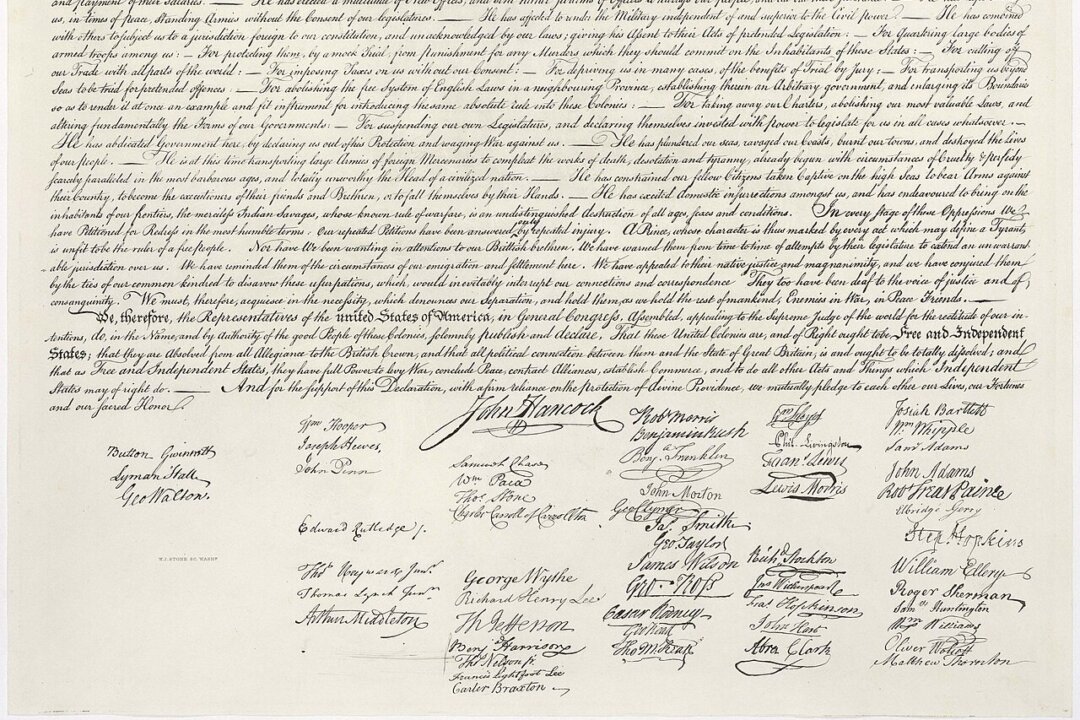 and payment of their salaries. — He has erected a multitude of New Offices, and sent hither swarms of Officers to harrass our people, and eat out their substance. — He has kept among
us, in times of peace, Standing Armies without the Consent of our legislatures. — He has affected to render the Military independent of and superior to the Civil power. — He has combined
with others to subject us to a jurisdiction foreign to our constitution, and unacknowledged by our laws; giving his Assent to their Acts of pretended Legislation: — For Quartering large bodies of
armed troops among us: — For protecting them, by a mock Trial, from punishment for any Murders which they should commit on the Inhabitants of these States: — For cutting off
our Trade with all parts of the world: — For imposing Taxes on us without our Consent: — For depriving us in many cases, of the benefits of Trial by Jury: — For transporting us beyond
Seas to be tried for pretended offences — For abolishing the free System of English Laws in a neighbouring Province, establishing therein an Arbitrary government, and enlarging its Boundaries
so as to render it at once an example and fit instrument for introducing the same absolute rule into these Colonies: — For taking away our Charters, abolishing our most valuable Laws, and
altering fundamentally the Forms of our Governments: — For suspending our own Legislatures, and declaring themselves invested with power to legislate for us in all cases whatsoever. —
He has abdicated Government here, by declaring us out of his Protection and waging War against us. — He has plundered our seas, ravaged our Coasts, burnt our towns, and destroyed the lives
of our people. — He is at this time transporting large Armies of foreign Mercenaries to compleat the works of death, desolation and tyranny, already begun with circumstances of Cruelty & perfidy
scarcely paralleled in the most barbarous ages, and totally unworthy the Head of a civilized nation. — He has constrained our fellow Citizens taken Captive on the high Seas to bear Arms against
their Country, to become the executioners of their friends and Brethren, or to fall themselves by their Hands. — He has excited domestic insurrections amongst us, and has endeavoured to bring on the
inhabitants of our frontiers, the merciless Indian Savages, whose known rule of warfare, is an undistinguished destruction of all ages, sexes and conditions. In every stage of these Oppressions We
have Petitioned for Redress in the most humble terms: Our repeated Petitions have been answered only by repeated injury. A Prince, whose character is thus marked by every act which may define a Tyrant,
is unfit to be the ruler of a free people. Nor have We been wanting in attentions to our Brittish brethren. We have warned them from time to time of attempts by their legislature to extend an unwarrant-
able jurisdiction over us. We have reminded them of the circumstances of our emigration and settlement here. We have appealed to their native justice and magnanimity, and we have conjured them
by the ties of our common kindred to disavow these usurpations, which, would inevitably interrupt our connections and correspondence They too have been deaf to the voice of justice and of
consanguinity. We must, therefore, acquiesce in the necessity, which denounces our Separation, and hold them, as we hold the rest of mankind, Enemies in War, in Peace Friends. —
We, therefore, the Representatives of the united States of America, in General Congress, Assembled, appealing to the Supreme Judge of the world for the rectitude of our in-
tentions, do, in the Name, and by Authority of the good People of these Colonies, solemnly publish and declare, That these United Colonies are, and of Right ought to be Free and Independent
States; that they are Absolved from all Allegiance to the British Crown, and that all political connection between them and the State of Great Britain, is and ought to be totally dissolved; and
that as Free and Independent States, they have full Power to levy War, conclude Peace, contract Alliances, establish Commerce, and to do all other Acts and Things which Independent
States may of right do. — And for the support of this Declaration, with a firm reliance on the protection of divine Providence, we mutually pledge to each other our Lives, our Fortunes
and our sacred Honor.
Button Gwinnett
Lyman Hall
Geo Walton.
W.J. STONE SC. WASHN.
Wm Hooper
Joseph Hewes,
John Penn
Edward Rutledge /.
Thos Heyward Junr.
Thomas Lynch Junr.
Arthur Middleton
John Hancock
Samuel Chase
Wm Paca
Thos Stone
Charles Carroll of Carrollton
George Wythe
Richard Henry Lee
Th Jefferson
Benj Harrison
Thos Nelson jr.
Francis Lightfoot Lee
Carter Braxton
Robt Morris
Benjamin Rush
Benj. Franklin
John Morton
Geo Clymer
Jas. Smith
Geo. Taylor
James Wilson
Geo. Ross
Caesar Rodney
Geo Read
Tho M:Kean
Wm Floyd
Phil. Livingston
Frans. Lewis
Lewis Morris
Richd. Stockton
Jno Witherspoon
Fras. Hopkinson
John Hart
Abra Clark
Josiah Bartlett
Wm Whipple
Saml Adams
John Adams
Robt Treat Paine
Elbridge Gerry
Step. Hopkins
William Ellery
Roger Sherman
Saml Huntington
Wm Williams
Oliver Wolcott
Matthew Thornton